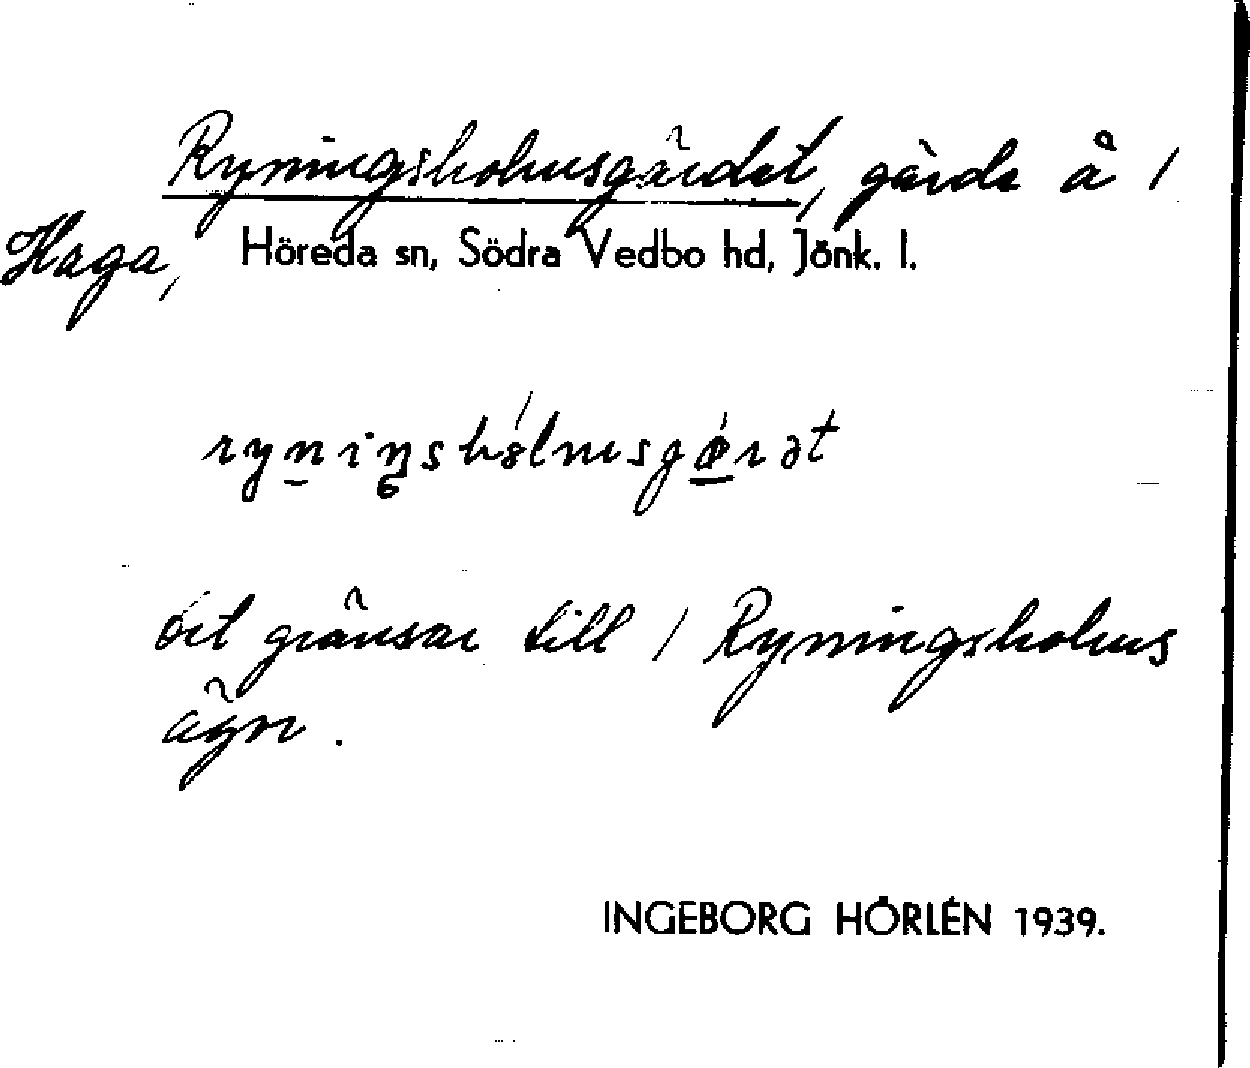 Ryningsholmsgärdet, gärde å /
Haga, Höreda sn, Södra Vedbo hd, Jönk. l.
det gränsar till / Ryningsholms
ägor.
INGEBORG HÖRLÉN 1939.